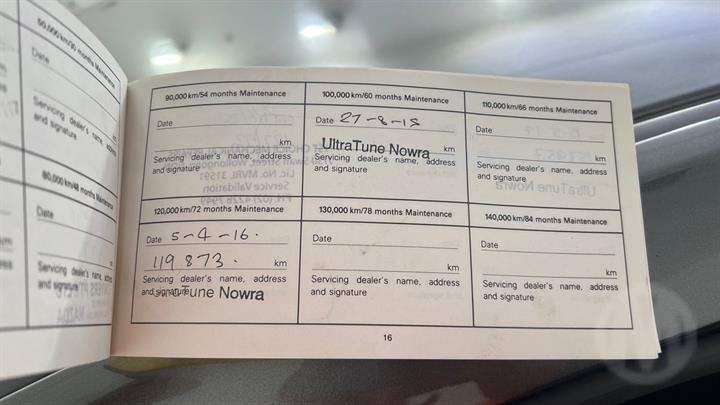 50,000 km/30 months Maintenance
Date
Servicing dealer's name, address
and signature
80,000 km/48 months Maintenance
Date
km
Servicing dealer's name, address
and signature
90,000 km/54 months Maintenance
Date
km
Servicing dealer's name, address
and signature
100,000 km/60 months Maintenance
Date 27-8-15
UltraTune Nowra km
Servicing dealer's name, address
and signature
110,000 km/66 months Maintenance
Date
km
Servicing dealer's name, address
and signature
120,000 km/72 months Maintenance
Date 5-4-16.
119873. km
Servicing dealer's name, address
and signature
Tune Nowra
130,000 km/78 months Maintenance
Date
km
Servicing dealer's name, address
and signature
140,000 km/84 months Maintenance
Date
km
Servicing dealer's name, address
and signature
16